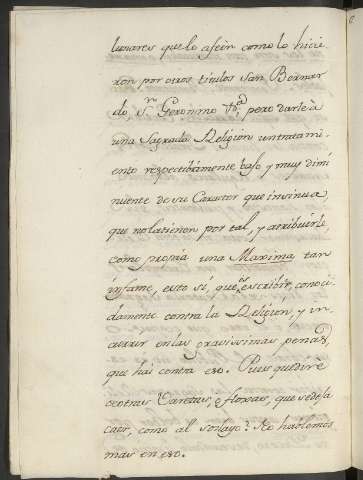 lunares que lo afeen como lo hicie
ron por otros titulos San Bernar
do, Sn Geronimo &ca; pero darle à
una Sagrada Religion un tratami
ento respectibamente bajo, y muy dimi
nuente de su Caracter que insinua,
que no la tienen por tal, y atribuirle,
como propia una Maxima tan
infame, esto si, que es escribir, conoci
damente contra la Religion, y in
currir en las gravissimas penas,
que hai contra eso. Pues que diré
de otras Caretas, ò flores, que se deja
caer, como al soslayo? No hablemos
mas en eso.